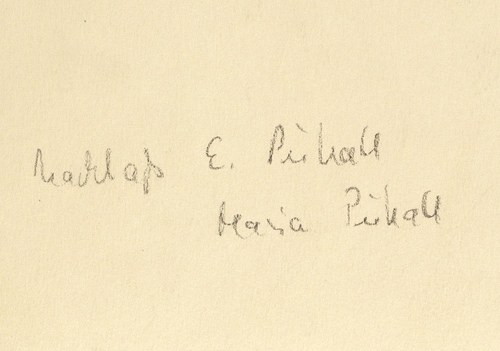 Nachlaß E. Pirchall
Maria Pirchall